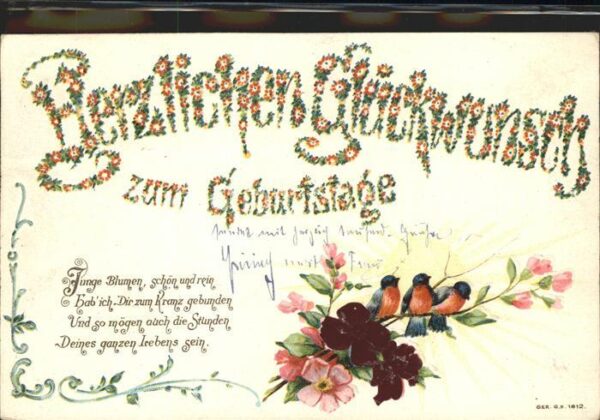 Herzlichen Glückwunsch
zum Geburtstage
sendet mit herzlich tausend Grüße
Junge Blumen, schön und rein
Hab' ich Dir zum Kranz gebunden
Und so mögen auch die Stunden
Deines ganzen Lebens sein.
GER. G.S. 1812.